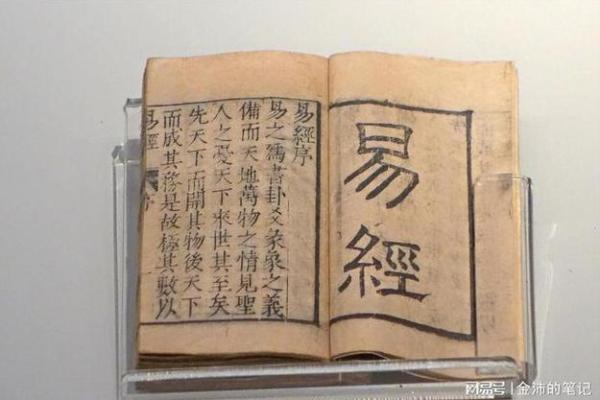 易經
易經序
易之爲書卦爻彖象之義
備而天地萬物之情見聖
人之憂天下來世其至矣
先天下而開其物後天下
而成其務是故極其數以
易經 序
网易号 | 金沛的笔记